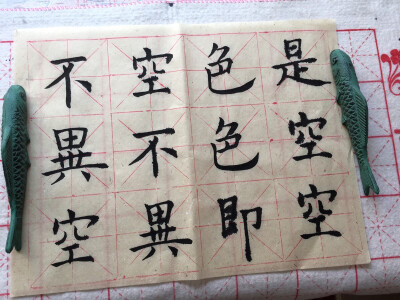 不異空
空不異
色色即
是空空